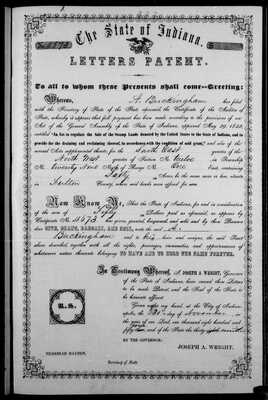 The State of Indiana.
LETTERS PATENT.
To all to whom these Presents shall come—Greeting:
Whereas, A. Buckingham has filed
with the Secretary of State of the State aforesaid the Certificate of the Auditor of
State, whereby it appears that full payment has been made according to the provisions of an
Act of the General Assembly of the State of Indiana, approved May 29, 1852,
entitled "An Act to regulate the Sale of the Swamp Lands donated by the United States to the State of Indiana, and to
provide for the draining and reclaiming thereof, in accordance with the condition of said grant," and also of the
several Acts supplemental thereto, for the North West quarter of the
North West quarter of Section No. Twelve in Township
No. Twenty Nine North of Range No. One East, containing
Forty Acres, be the same more or less, situate in
Fulton County, where said lands were offered for sale.
Now Know Ye, That the State of Indiana, for and in consideration
of the sum of Fifty Dollars paid as aforesaid, as appears by
Certificate No. 4673 has given, granted, bargained and sold, and by these Presents
does GIVE, GRANT, BARGAIN, AND SELL, unto the said A.
Buckingham and to his heirs and assigns, the said Tract
above described, together with all the rights, privileges, immunities, and appurtenances of
whatsoever nature thereunto belonging TO HAVE AND TO HOLD THE SAME FOREVER.
In Testimony Whereof, I, JOSEPH A. WRIGHT, Governor
of the State of Indiana, have caused these Letters
to be made Patent, and the Seal of the State to
be hereunto affixed.
Given under my hand, at the City of Indian-
apolis, the day of November in
the year of our Lord, one thousand eight hundred and
fifty four and of the State the thirty eighth
BY THE GOVERNOR:
JOSEPH A. WRIGHT.
L. S.
NEHEMIAH HAYDEN,
Secretary of State.